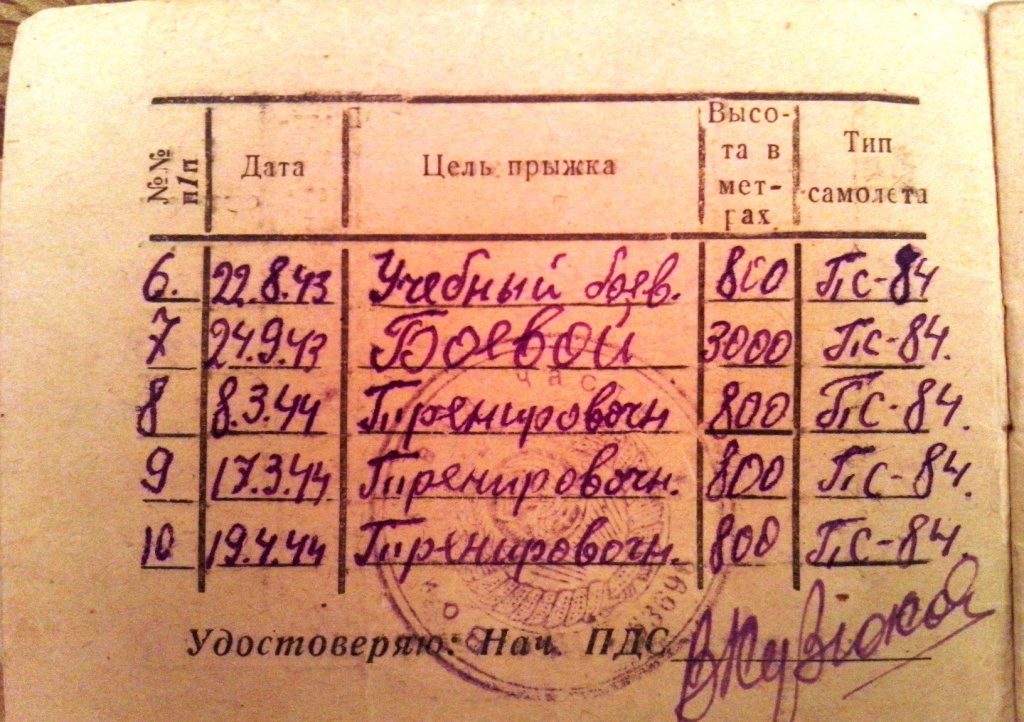 №№ п/п Дата Цель прыжка Высо-та в мет-рах Тип самолета
6. 22.8.43 Учебный боев. 800 ПС-84
7 24.9.43 Боевой 3000 ПС-84.
8 8.3.44 Тренировочн 800 ПС-84.
9 17.3.44 Тренировочн. 800 ПС-84.
10 19.4.44 Тренировочн. 800 ПС-84.
Удостоверяю: Нач. ПДС